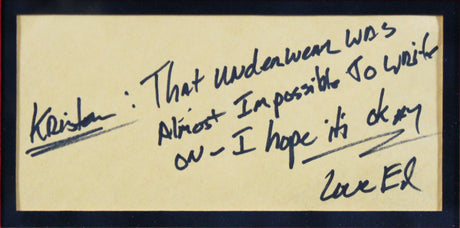 Kristen: That underwear was
Almost Impossible To write
on - I hope it's okay
Love Ed